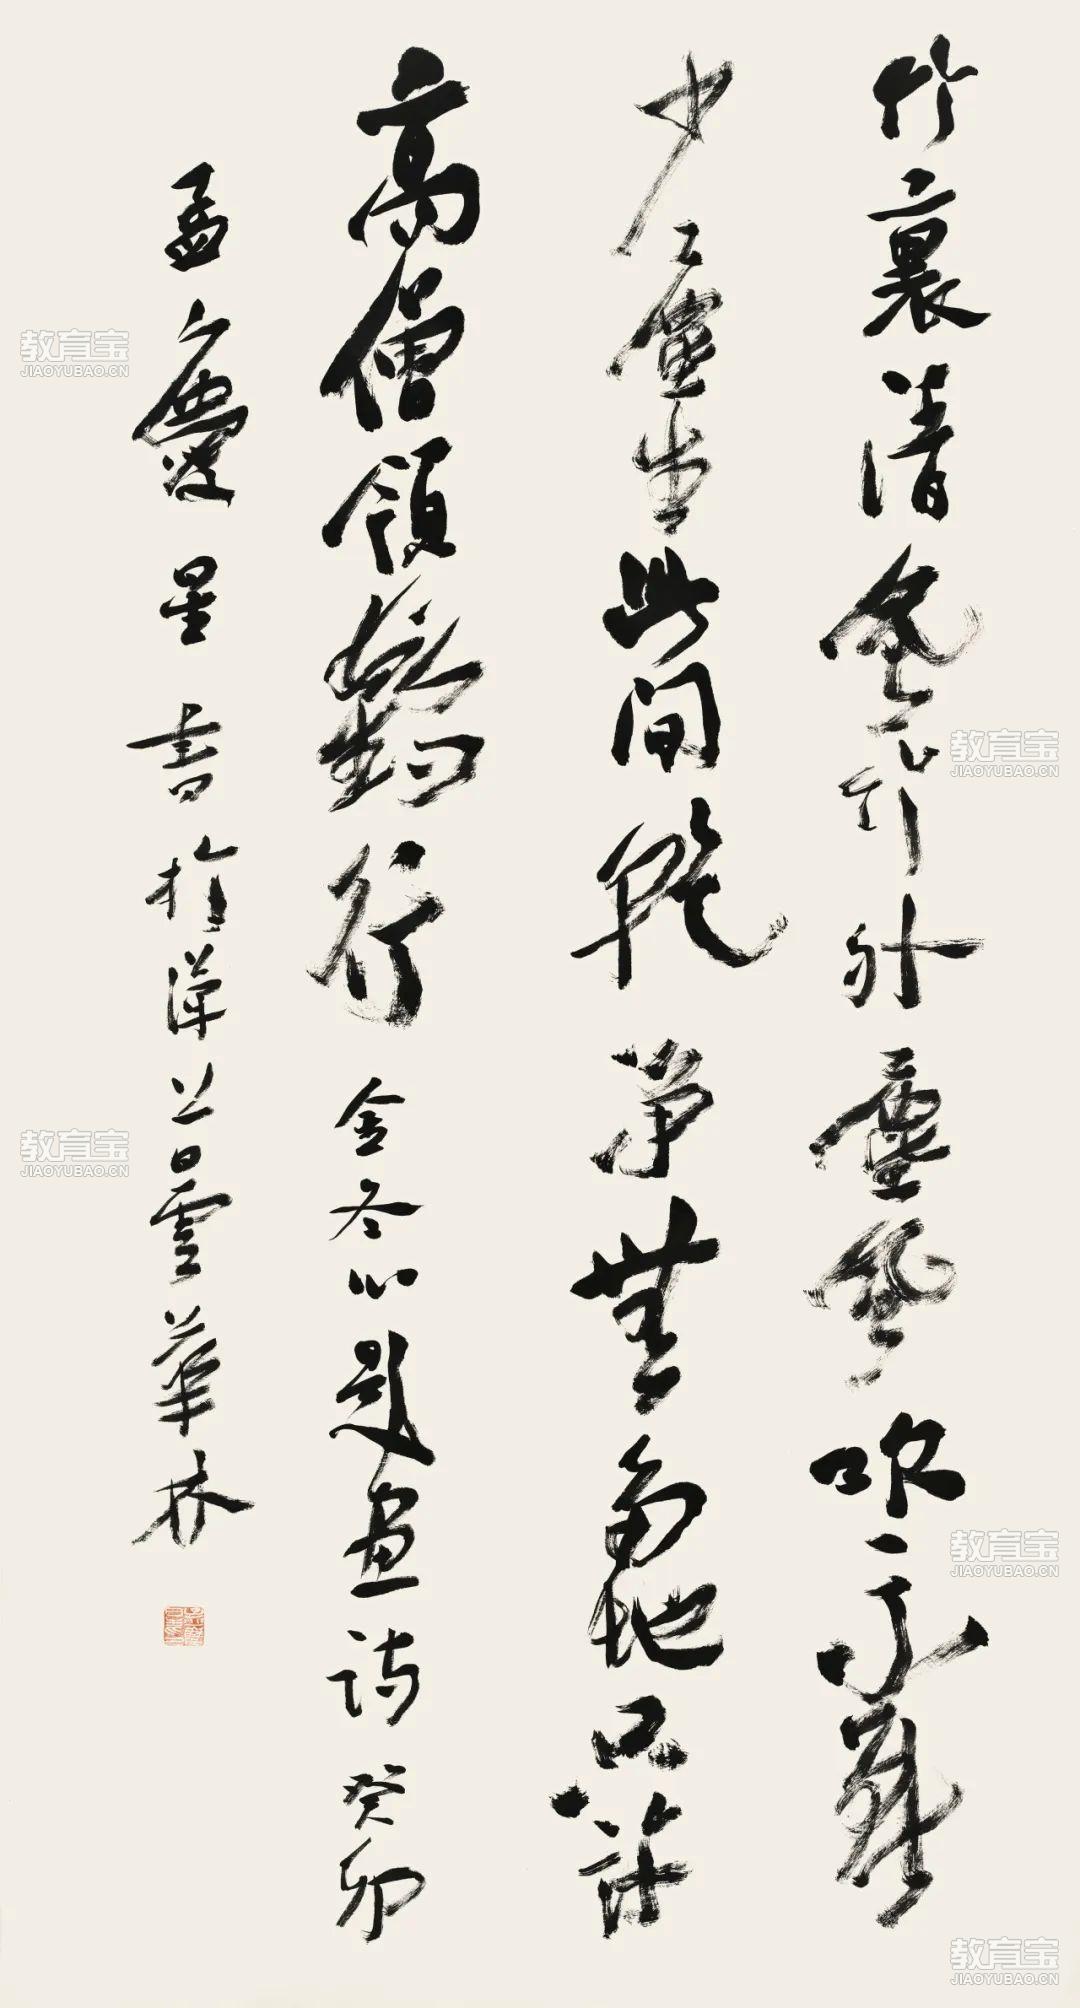 竹裏清風竹外塵風吹不斷
少塵生此間乾淨無多地只許
高僧領鶴行 金冬心題畫詩 癸卯
孟慶星書於漢上曇華林
教育宝
JIAOYUBAO.CN
教育宝
JIAOYUBAO.CN
教育宝
JIAOYUBAO.CN
教育宝
JIAOYUBAO.CN
教育宝
JIAOYUBAO.CN